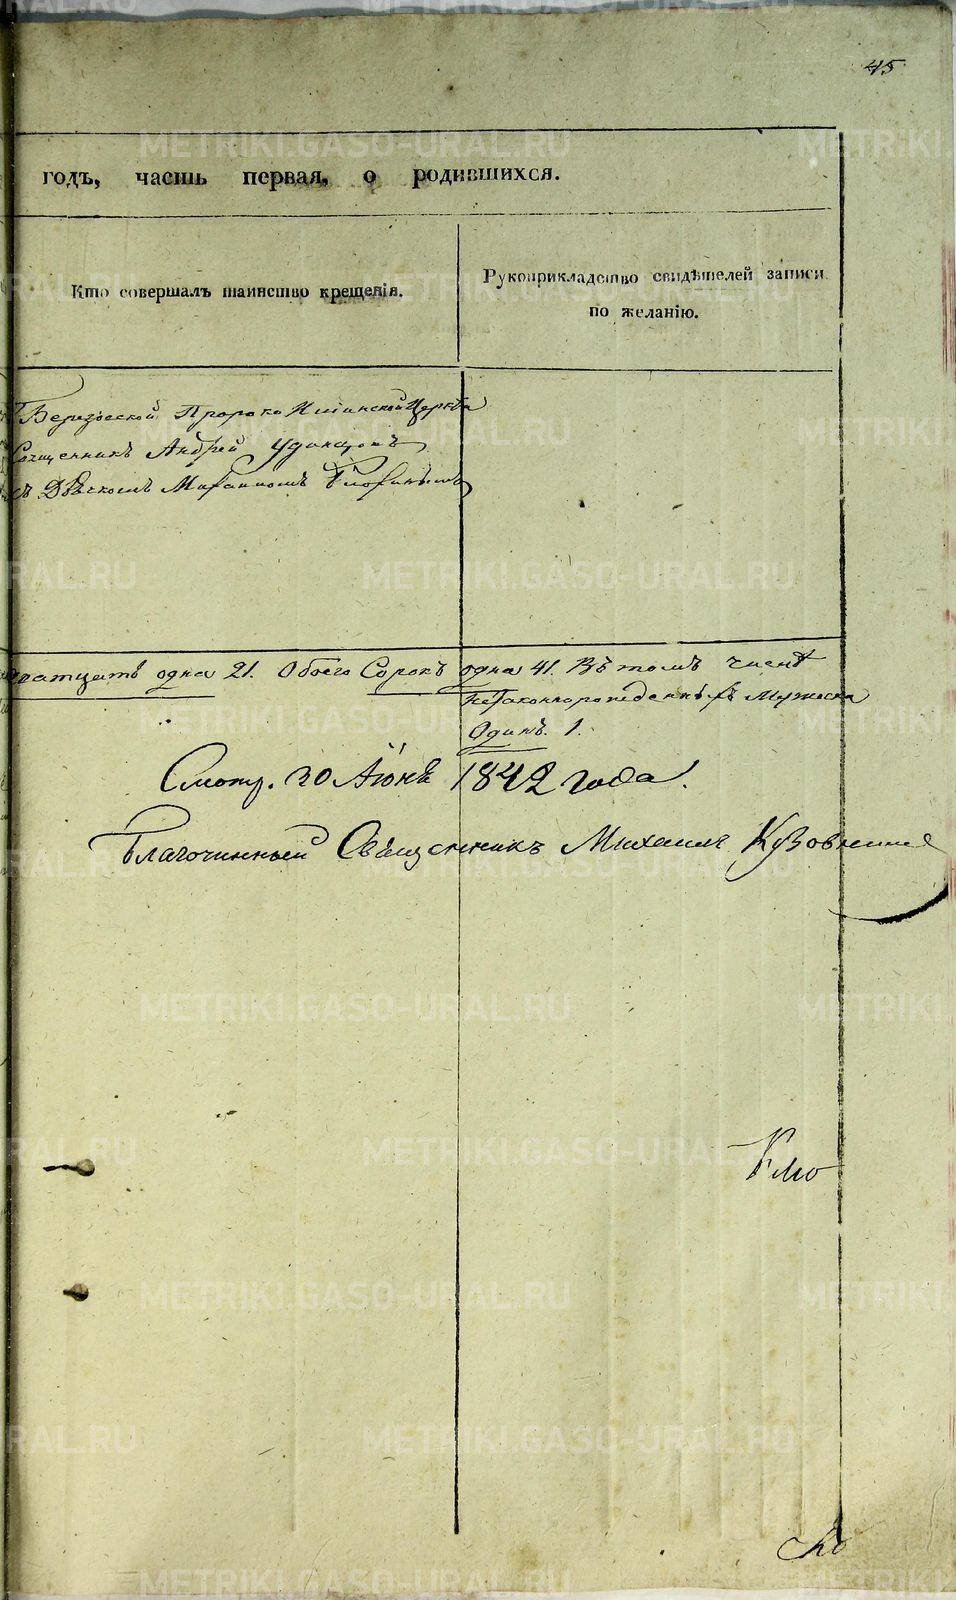 45
годъ, часть первая, о родившихся.
Кто совершалъ таинство крещенія.
Рукоприкладство свидѣтелей записи
по желанію.
Березовской Пророко Илиинской Церкви
Священникъ Андрей Удинцовъ
съ Дьячкомъ
дватцать одна 21. Обоего Сорокъ одна 41. Въ томъ числѣ
незаконнорожденныхъ Мужеска
Одинъ. 1.
Смотр. 20 Июня 1842 года.
Благочинный Священникъ Михаилъ
METRIKI.GASO-URAL.RU